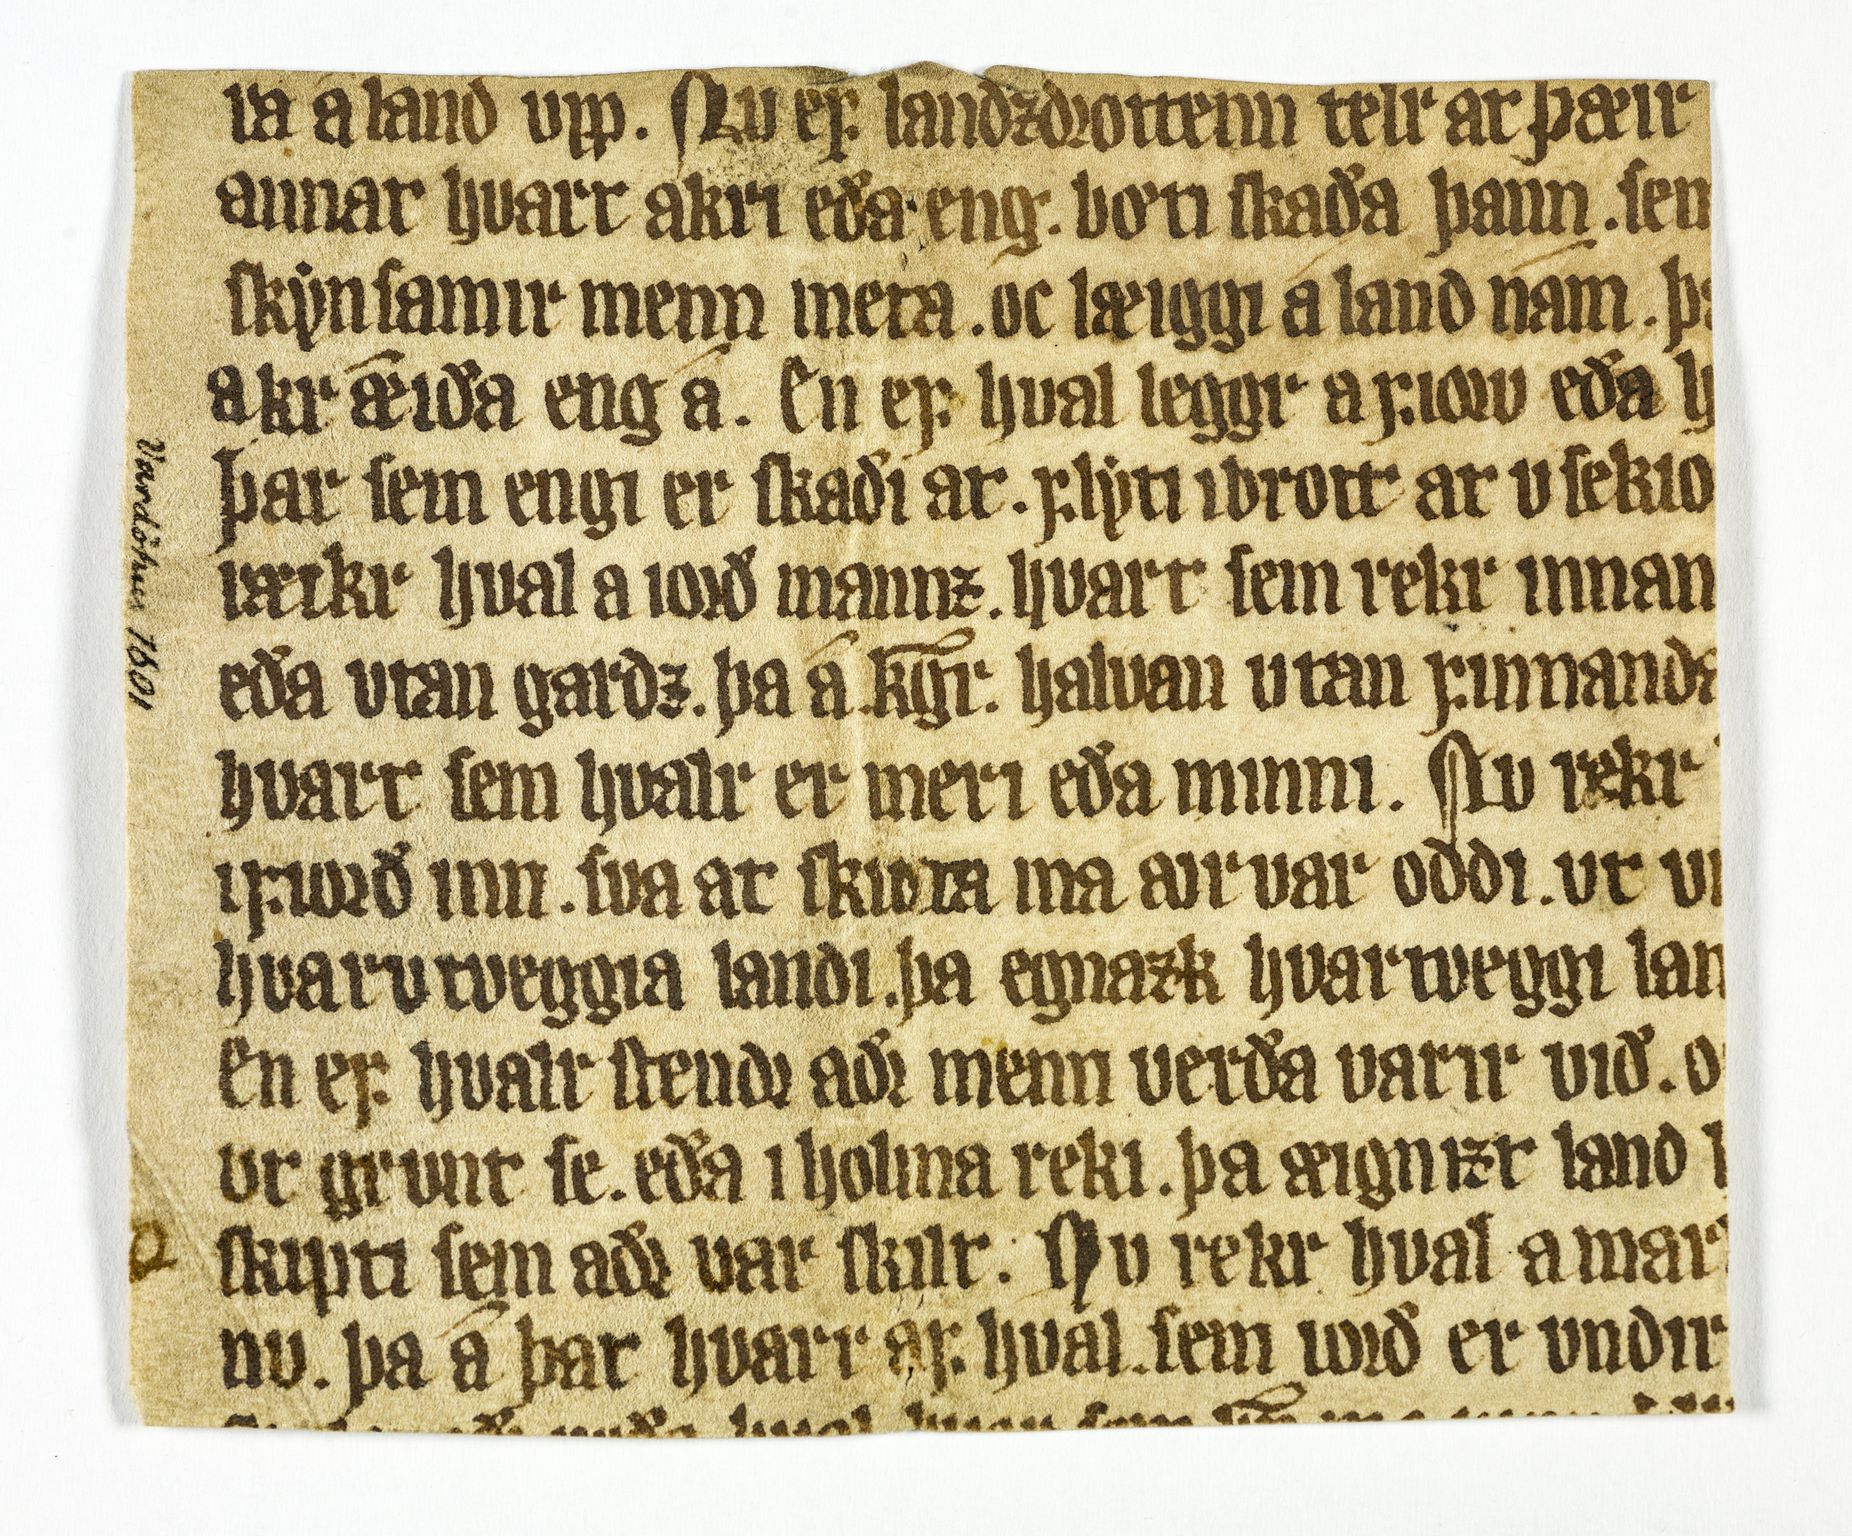 ra a land vpp. Nu ef landzdrottenn telr at þæir
annat hvart akri eða eng. bøti skaða þann. sem
skẏnsamir menn meta. oc læiggi a land nám. þa
akr æ iða eng á. En ef hval leggr a fiorv eða h
þar sem engi er skaði at. flẏti ibrott at vsekio
rækr hval a iorð mannz. hvart sem rekr innan
eða vtan gardz. þa á kgr. halvan vtan finnanda
hvart sem hvalr er meri eða minni. Nu rekr
ifiorð inn. sva at skiota ma orvar oddi. vt vn
hvarvtveggia landi. þa egnazk hvartveggi lan
En ef hvalr stendr aðr menn verða varir við. o
vt grvnt se. eða i holma reki. þa æignizt land
skipti sem aðr var skilt. Nu rekr hval a mar
nv. þa á þar hvarr af hval. sem iorð er vndir
Vardöhus 1601